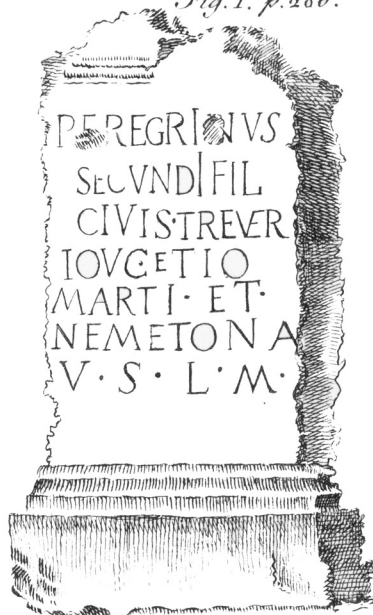 Fig. 1. p. 280.
PEREGRINVS
SECVNDI FIL
CIVIS·TREVER
IOVCETIO
MARTI·ET·
NEMETONA
V·S·L·M·